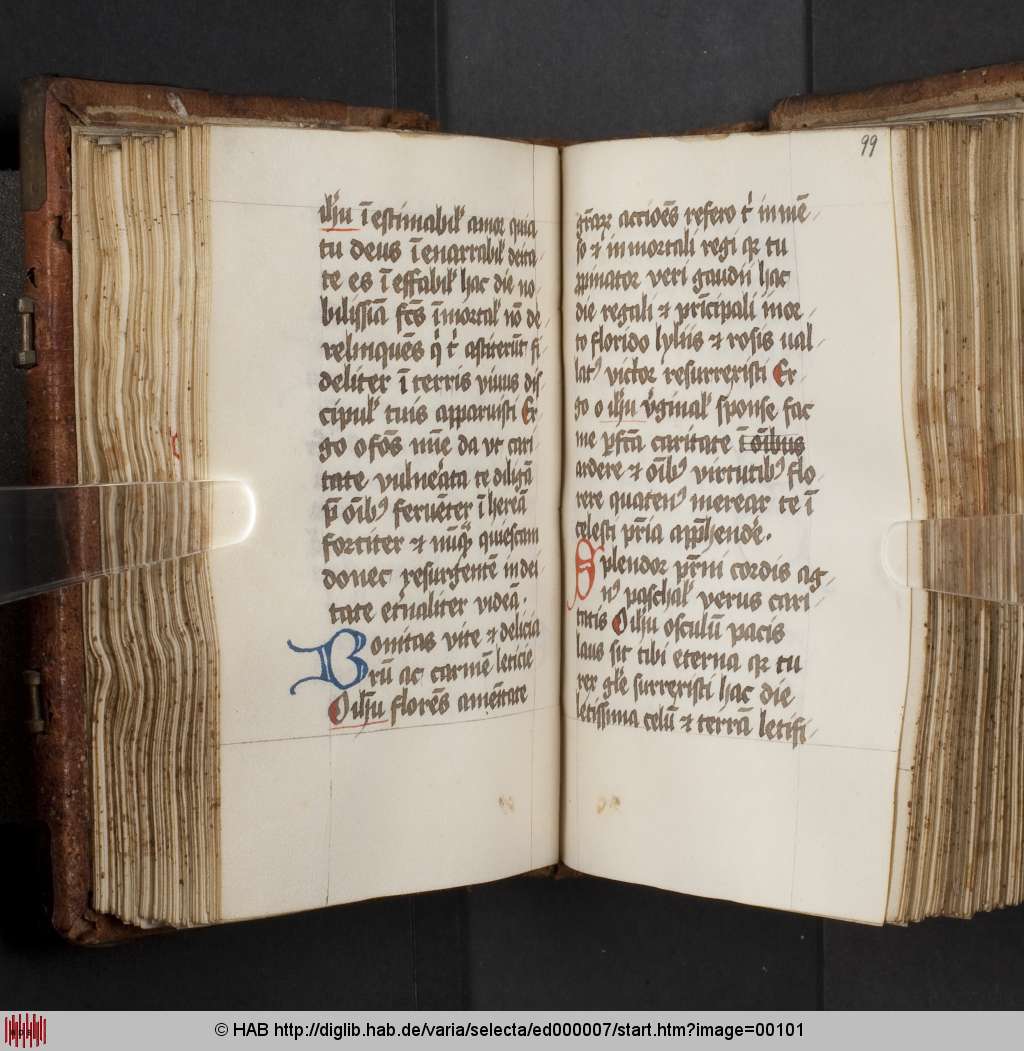 ihu̅ i̅estimabil' amor quia
tu deus i̅enarrabil' deita-
te es i̅effabil' hac die no-
bilissi̅a fc̅s i̅mortal' no̅ de-
relinque̅s qͥ tͥ astiteru̅t fi-
deliter i̅ terris viuus dis-
cipul' tuis apparuisti Er-
go o fo̅s mi̅e da vt cari-
tate vulnerata te diligā
p̅ o̅ibꝰ ferue̅ter i̅hereā
fortiter ⁊ nu̅qͣ quiescam
donec resurgente̅ in dei-
tate et'naliter videā.
Bonitas vite ⁊ delicia-
ru̅ ac carme̅ leticie
O ihu̅ flore̅s ame̅itate
99
gr̅ar̅ accio̅es refero tͥ in me̅-
so ⁊ in mortali regi qꝛ tu
ꝓpinator veri gaudii hac
die regali ⁊ pri̅cipali inor-
to florido lyliis ⁊ rosis val-
latꝰ victor resurrexisti Er-
go o ihu̅ v'ginal' sponse fac
me ꝑfc̅a caritate i̅ o̅ibus
ardere ⁊ o̅ibꝰ virtutibꝰ flo-
rere quatenꝰ merear te i̅
celesti pr̅ia app̅hende̅.
Splendor pr̅ni cordis ag-
nꝰ paschal' verus cari-
tatis O ihu̅ osculu̅ pacis
laus sit tibi eterna qꝛ tu
rex gl'e surrexisti hac die
letissima celu̅ ⁊ terrā letifi-
© HAB http://diglib.hab.de/varia/selecta/ed000007/start.htm?image=00101